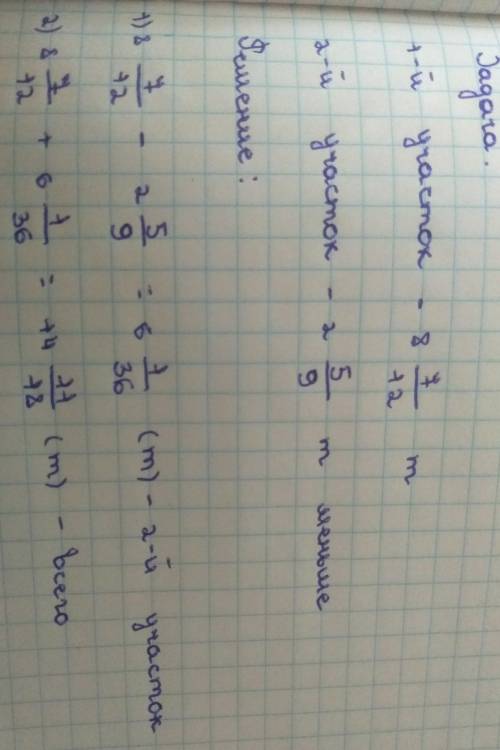 Задача.
1-й участок - 8 7/12 т
2-й участок - 2 5/9 т меньше
Решение:
1) 8 7/12 - 2 5/9 = 6 1/36 (т) - 2-й участок
2) 8 7/12 + 6 1/36 = 14 11/18 (т) - всего